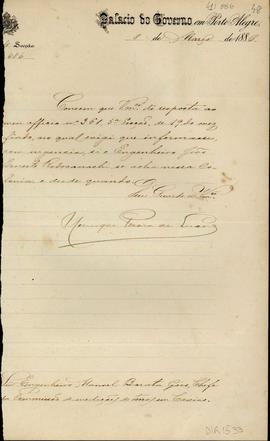 Palacio do Governo em Porto Alegre,
8 de Março de 188
5ª Secção
Convem que Vmcê dê resposta ao
meu officio nº 361, 5ª Secção, de 19 do mez
findo, no qual exigi que informasse,
com urgencia, si o Engenheiro
Ernesto se acha nessa Co-
lonia e desde quando.
Deus Guarde a Vmcê
Henrique Pereira de Lucena
Snr Engenheiro Manoel Barata Góes, Chefe
da Commissão de medições de terras em Caxias.